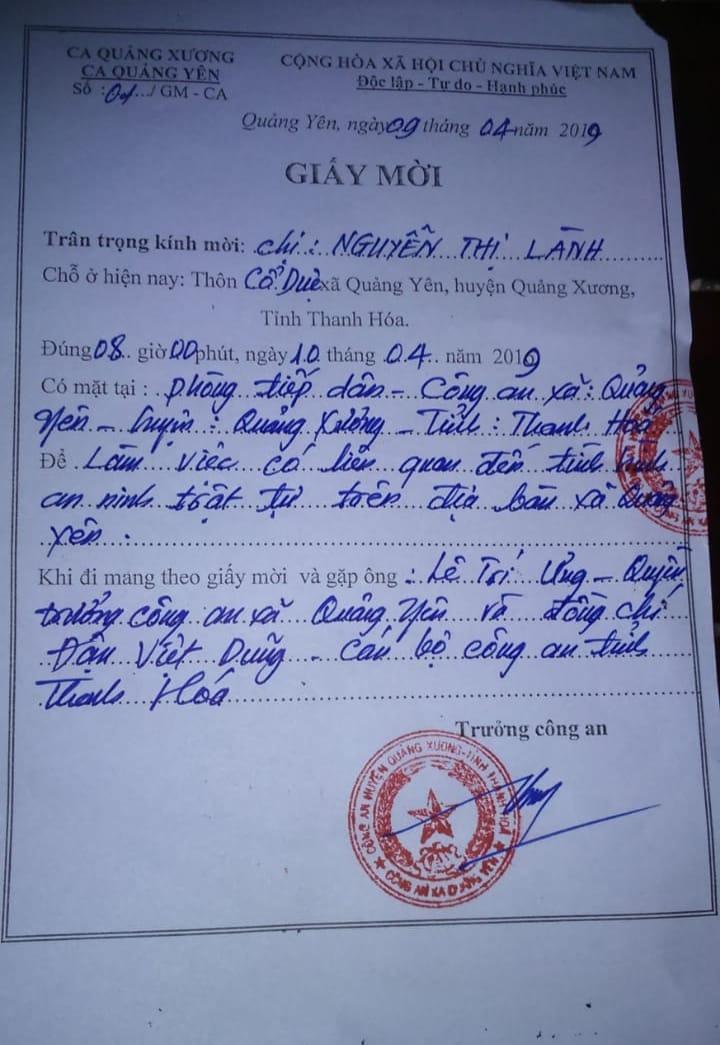 CA QUẢNG XƯƠNG
CA QUẢNG YÊN
Số :01.../ GM - CA
CỘNG HÒA XÃ HỘI CHỦ NGHĨA VIỆT NAM
Độc lập - Tự do - Hạnh phúc
Quảng Yên, ngày 09 tháng 04 năm 2019
GIẤY MỜI
Trân trọng kính mời: chị : NGUYỄN THỊ LÀNH
Chỗ ở hiện nay: Thôn Cổ Duệ xã Quảng Yên, huyện Quảng Xương,
Tỉnh Thanh Hóa.
Đúng 08 giờ 00 phút, ngày 10 tháng 04 năm 2019
Có mặt tại : phòng tiếp dân - Công an xã: Quảng
Yên - huyện : Quảng Xương - Tỉnh : Thanh Hoá
Để Làm việc có liên quan đến tình hình
an ninh trật tự trên địa bàn xã Quảng
Yên.
Khi đi mang theo giấy mời và gặp ông : Lê Trí Ưng - Quyền
trưởng công an xã Quảng Yên và đồng chí
Đậu Việt Dũng - Cán bộ công an tỉnh
Thanh Hoá
Trưởng công an
CÔNG AN HUYỆN QUẢNG XƯƠNG-TỈNH THANH HOÁ
CÔNG AN XÃ QUẢNG YÊN